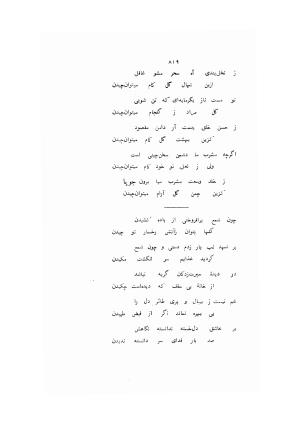 ۸۱۹
ز نخل‌بندی آه سحر مشو غافل
ازین نهال گل کام میتوان‌چیدن
تو مست ناز بگرمابه‌ای که تن شویی
گل مراد ز گلجام میتوان‌چیدن
ز حسن خلق بدست آر دامن مقصود
کزین بهشت گل کام میتوان‌چیدن
اگرچه مشرب ما دشمن سخن‌چینی است
ولی ز لعل تو خود کام میتوان‌چیدن
ز خلد وسعت مشرب میا برون جویا
کزین چمن گل آرام میتوان‌چیدن
چون شمع برافروختی از باده کشیدن
گلها بتوان زآتش رخسار تو چیدن
بر شهد لب یار زدم دستی و چون شمع
گردید غذایم سر انگشت مکیدن
در دیدۀ حیرت‌زدگان گریه نباشد
از خانۀ بی سقف که دیده‌است چکیدن
غم نیست ز بیبال و پری طائر دل را
بی بهره نماند اگر از فیض طپیدن
بر عاشق دل‌خسته ندانسته نگاهی
صد بار فدای سر دانسته ندیدن